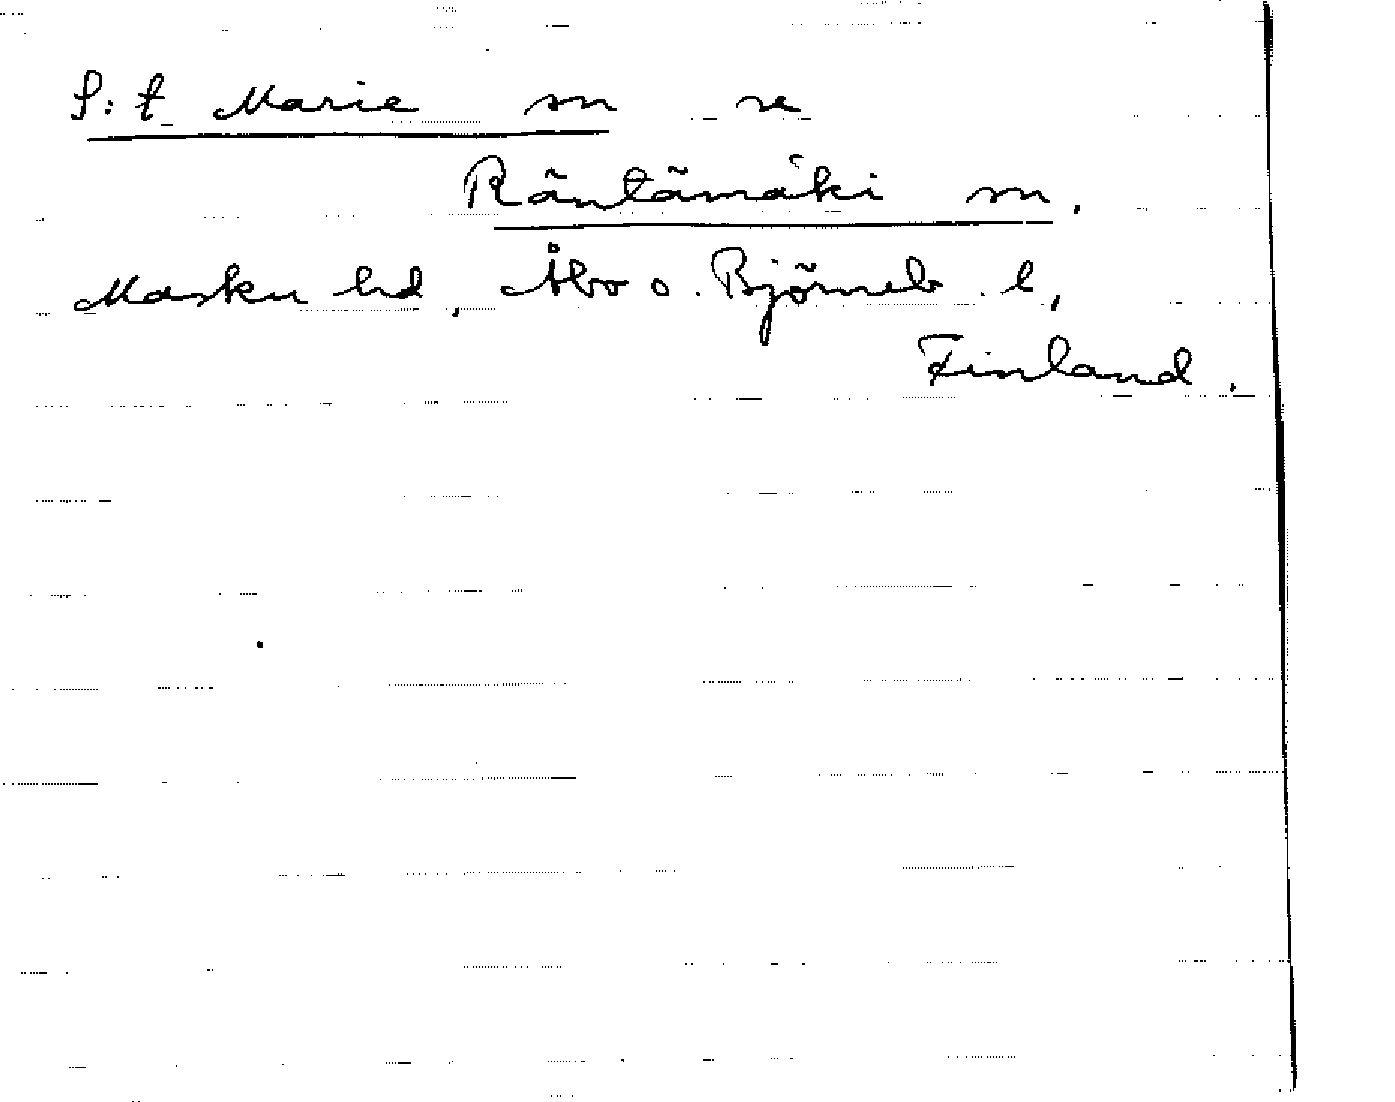 S:t Marie sn se
Räntämäki sn.
Masku hd, Åbo o. Björneb. l,
Finland.